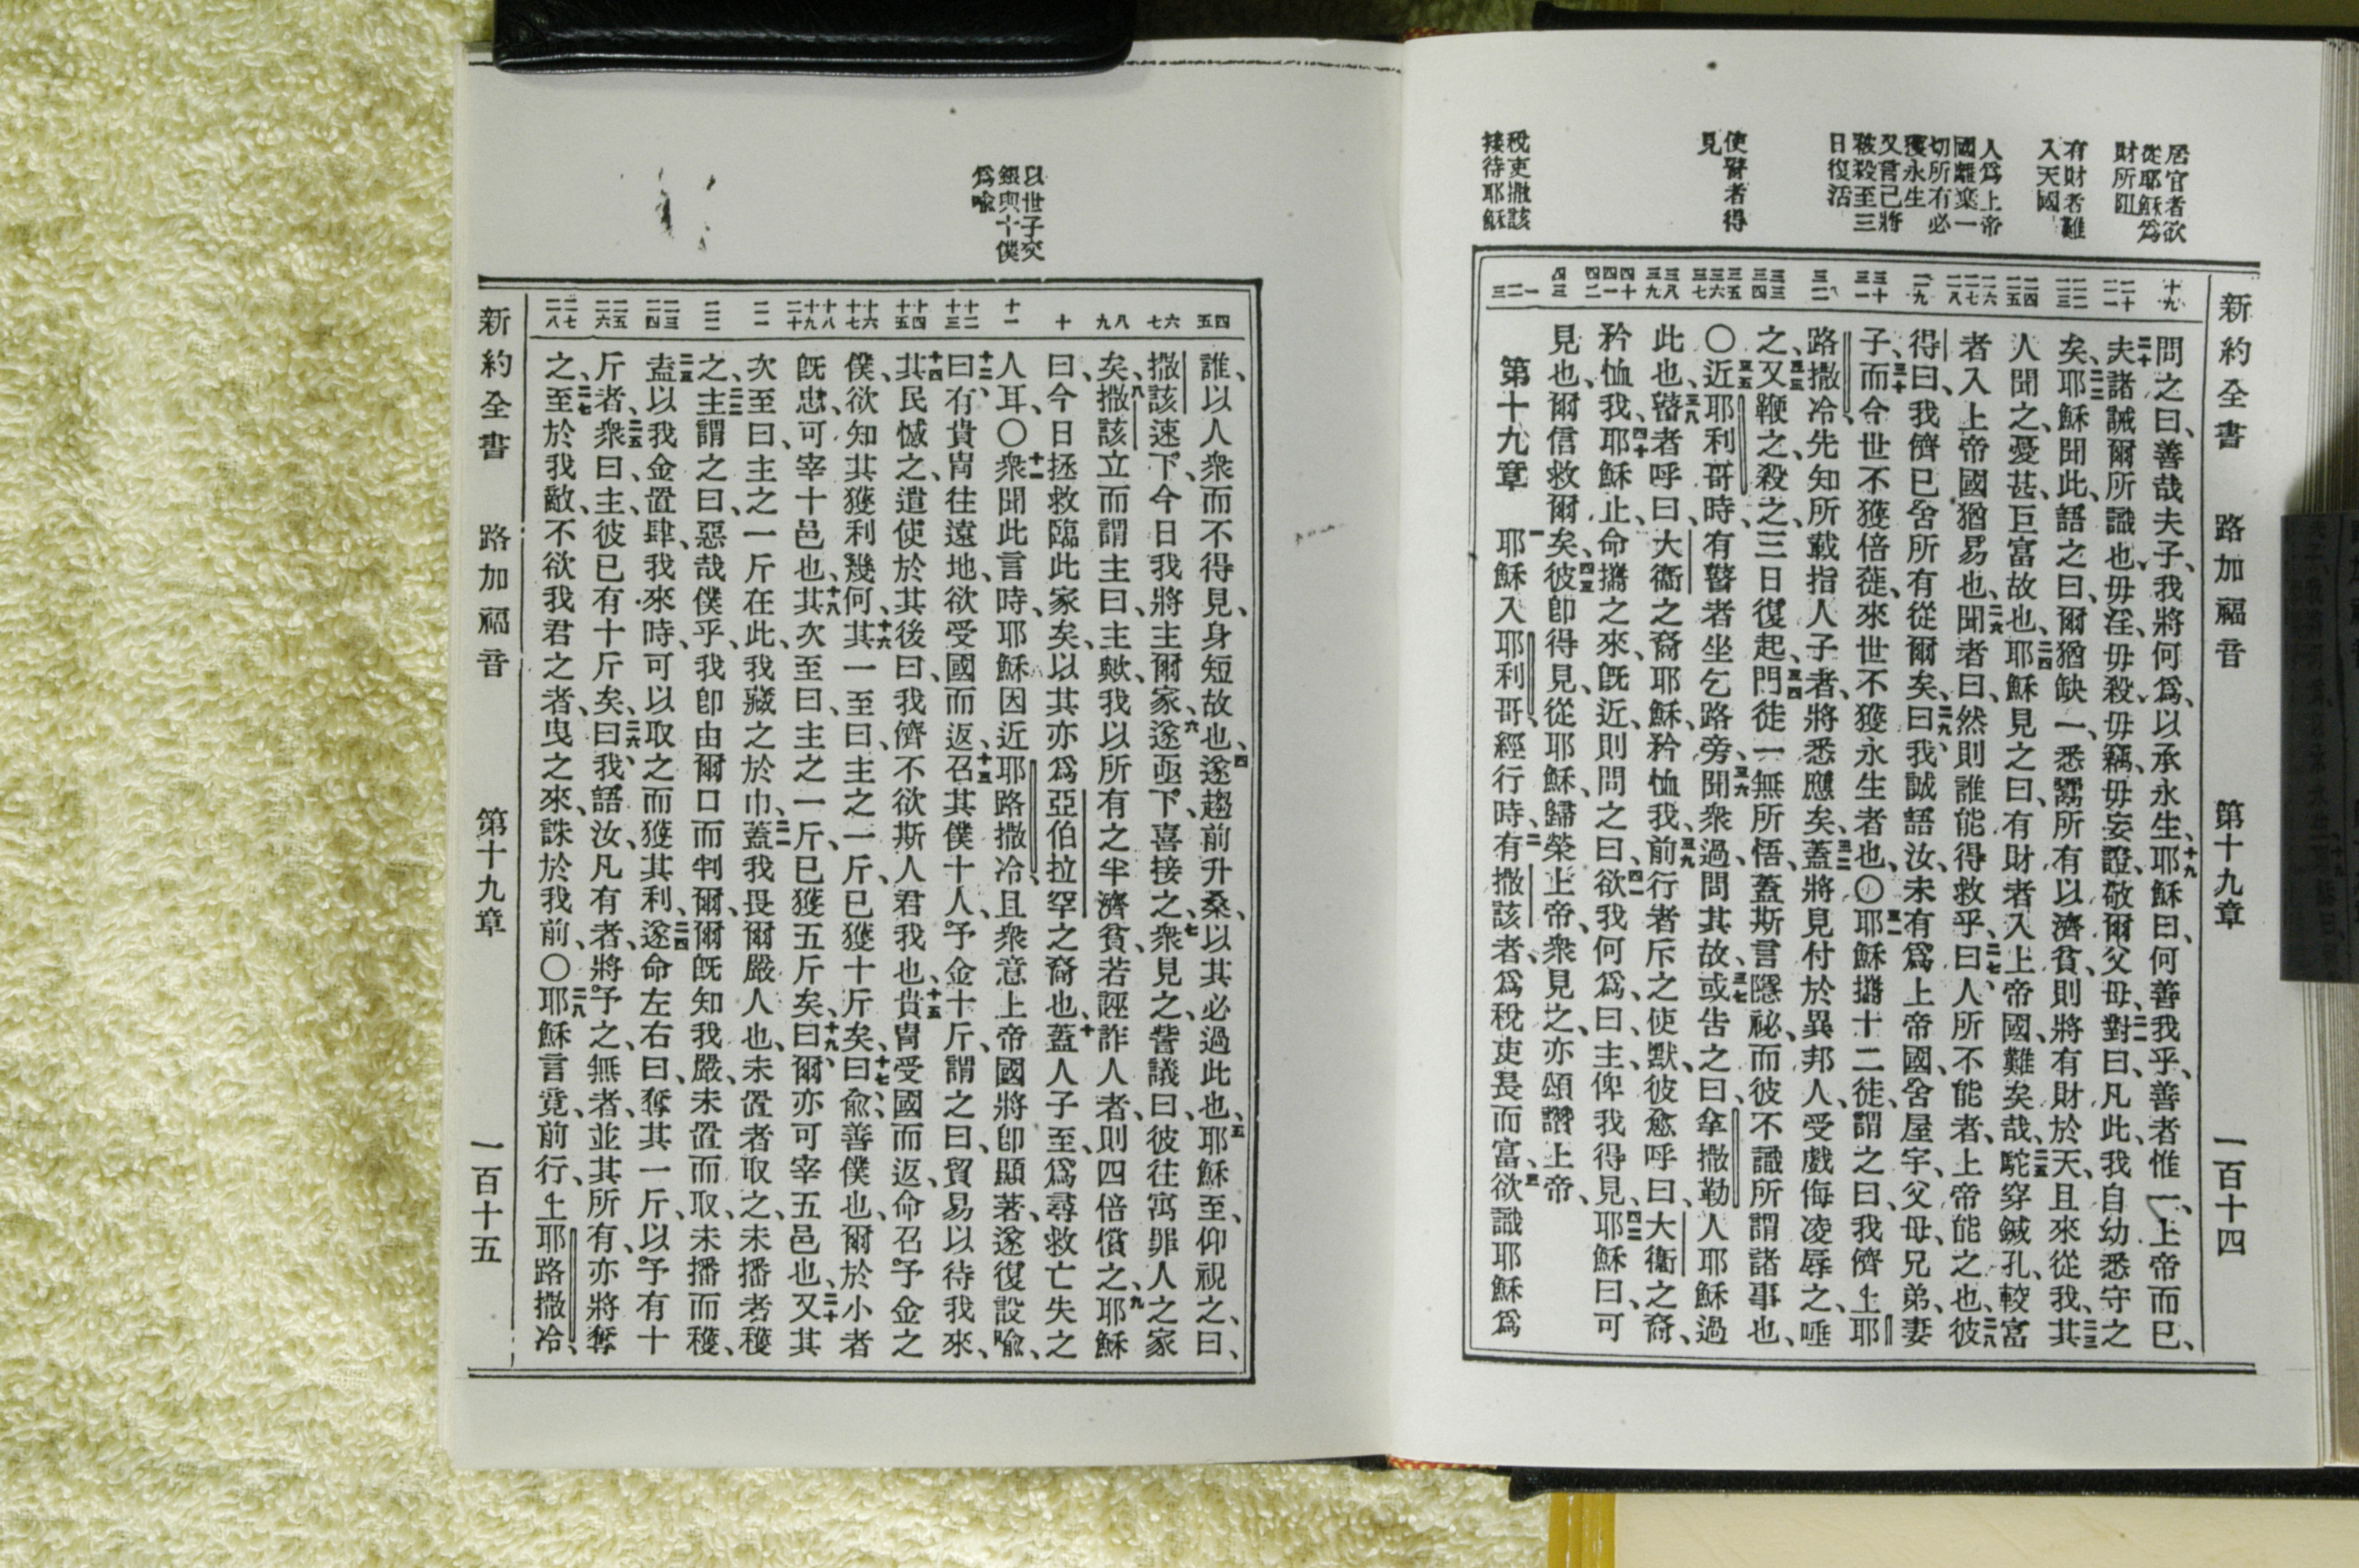 新約全書 路加福音 第十九章 一百十四
居官者欲
從耶穌爲
財所阻
有財者難
入天國
人爲上帝
國離棄一
切所有必
獲永生
又言己將
被殺至三
日復活
使瞽者得
見
稅吏撒該
接待耶穌
十九
二十
二一
二二
二三
二四
二五
二六
二七
二八
二九
三十
三一
三二
三三
三四
三五
三六
三七
三八
三九
四十
四一
四二
四三
一
二
三
問之曰、善哉夫子、我將何爲、以承永生、十九耶穌曰、何善我乎、善者惟一、上帝而已、
二十夫諸誡爾所識也、毋淫、毋殺、毋竊、毋妄證、敬爾父母、二一對曰、凡此、我自幼悉守之
矣、二二耶穌聞此、語之曰、爾猶缺一、悉鬻所有以濟貧、則將有財於天、且來從我、二三其
人聞之、憂甚、巨富故也、二四耶穌見之曰、有財者入上帝國、難矣哉、二五駝穿鍼孔、較富
者入上帝國猶易也、二六聞者曰、然則誰能得救乎、二七曰、人所不能者、上帝能之也、二八彼
得曰、我儕已舍所有從爾矣、二九曰、我誠語汝、未有爲上帝國、舍屋宇、父母、兄弟、妻
子、三十而今世不獲倍蓰、來世不獲永生者也、〇三一耶穌攜十二徒、謂之曰、我儕上耶
路撒冷、先知所載指人子者、將悉應矣、三二蓋將見付於異邦人、受戲侮凌辱之、唾
之、三三又鞭之、殺之、三日復起、三四門徒一無所悟、蓋斯言隱祕、而彼不識所謂諸事也、
〇三五近耶利哥時、有瞽者坐乞路旁、三六聞衆過、問其故、三七或告之曰、拿撒勒人耶穌過
此也、三八瞽者呼曰、大衞之裔耶穌、矜恤我、三九前行者斥之使默、彼愈呼曰、大衞之裔、
矜恤我、四十耶穌止、命攜之來、既近、則問之曰、四一欲我何爲、曰、主、俾我得見、四二耶穌曰、可
見也、爾信救爾矣、四三彼卽得見、從耶穌、歸榮上帝、衆見之、亦頌讚上帝、
第十九章 一耶穌入耶利哥、經行時、二有撒該者、爲稅吏長而富、三欲識耶穌爲
以世子交
銀與十僕
爲喩
四
五
六
七
八
九
十
十一
十二
十三
十四
十五
十六
十七
十八
十九
二十
二一
二二
二三
二四
二五
二六
二七
二八
誰、以人衆而不得見、身短故也、四遂趨前升桑、以其必過此也、五耶穌至、仰視之、曰、
撒該速下、今日我將主爾家、六遂亟下、喜接之、七衆見之、訾議曰、彼往寓罪人之家
矣、八撒該立而謂主曰、主歟、我以所有之半濟貧、若誣詐人者、則四倍償之、九耶穌
曰、今日拯救臨此家矣、以其亦爲亞伯拉罕之裔也、十蓋人子至、爲尋救亡失之
人耳、〇十一衆聞此言時、耶穌因近耶路撒冷、且衆意上帝國將卽顯著、遂復設喩、
十二曰、有貴胄往遠地、欲受國而返、十三召其僕十人、予金十斤、謂之曰、貿易以待我來、
十四其民憾之、遣使於其後曰、我儕不欲斯人君我也、十五貴胄受國而返、命召予金之
僕、欲知其獲利幾何、十六其一至曰、主之一斤、已獲十斤矣、十七曰、兪、善僕也、爾於小者
既忠、可宰十邑也、十八其次至曰、主之一斤、已獲五斤矣、十九曰、爾亦可宰五邑也、二十又其
次至曰、主之一斤在此、我藏之於巾、二一蓋我畏爾嚴人也、未置者取之、未播者穫
之、二二主謂之曰、惡哉僕乎、我卽由爾口而判爾、爾既知我嚴、未置而取、未播而穫、
二三盍以我金置肆、我來時、可以取之而獲其利、二四遂命左右曰、奪其一斤、以予有十
斤者、二五衆曰、主、彼已有十斤矣、二六曰、我語汝、凡有者、將予之、無者、並其所有、亦將奪
之、二七至於我敵、不欲我君之者、曳之來、誅於我前、〇二八耶穌言竟、前行、上耶路撒冷、
新約全書 路加福音 第十九章 一百十五